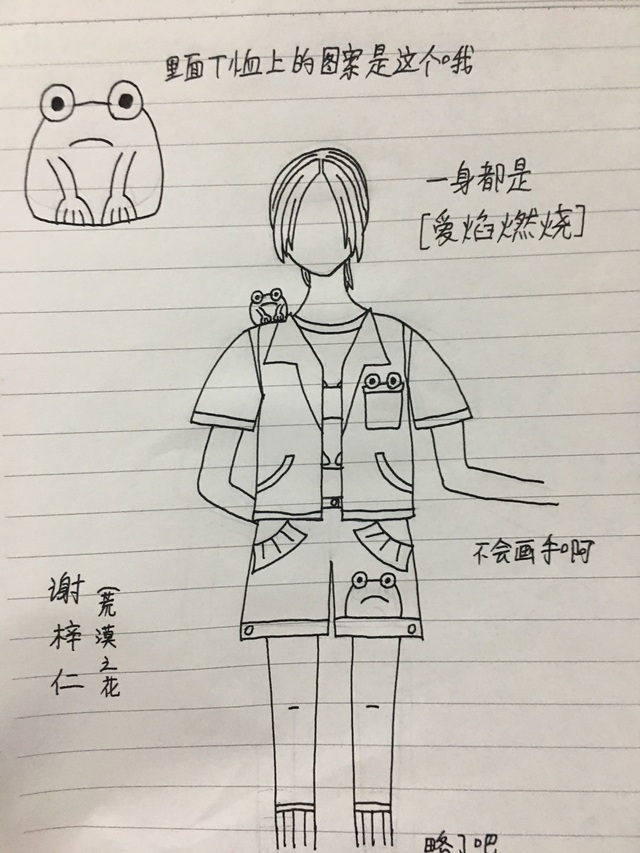 里面T恤上的图案是这个哦
一身都是
[爱焰燃烧]
不会画手啊
谢梓仁
(荒漠之花
略了吧